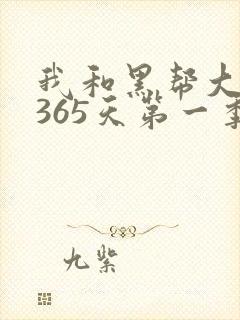 我和黑帮大
365天第一季
九紫